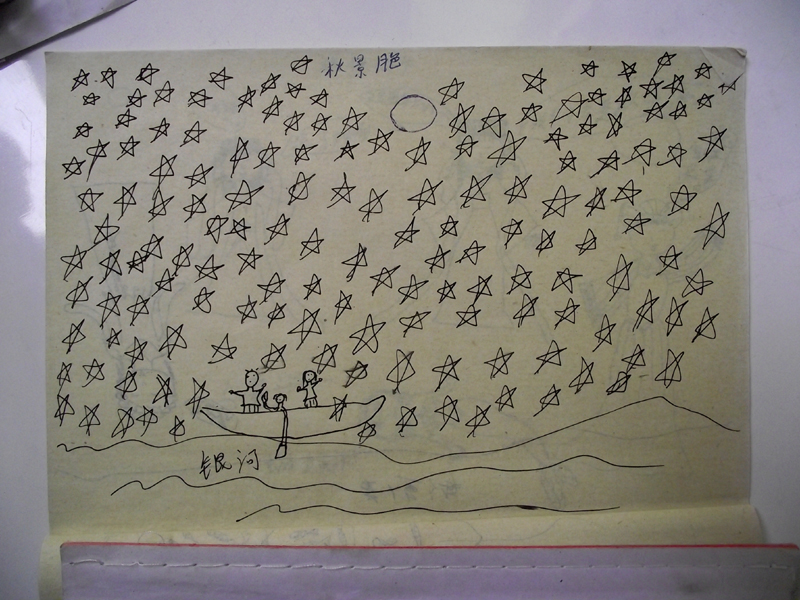 秋景胞
银河